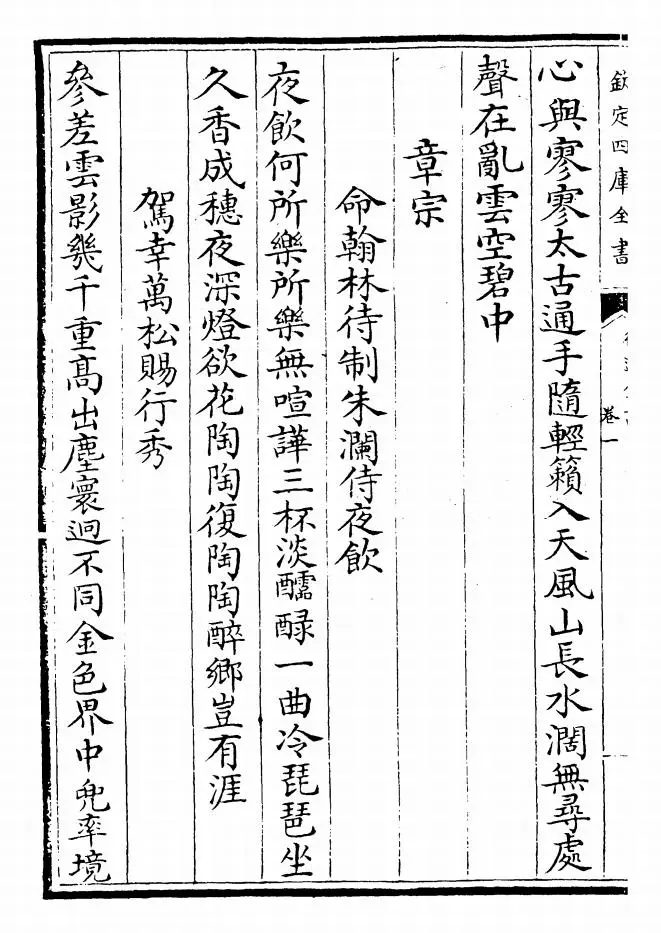 欽定四庫全書
卷一
心與寥寥太古通手隨輕籟入天風山長水濶無尋處
聲在亂雲空碧中
章宗
命翰林待制朱瀾侍夜飲
夜飲何所樂所樂無喧譁三杯淡醹醁一曲冷琵琶坐
久香成穗夜深燈欲花陶陶復陶陶醉鄉豈有涯
駕幸萬松賜行秀
參差雲影幾千重髙出塵寰逈不同金色界中兜率境